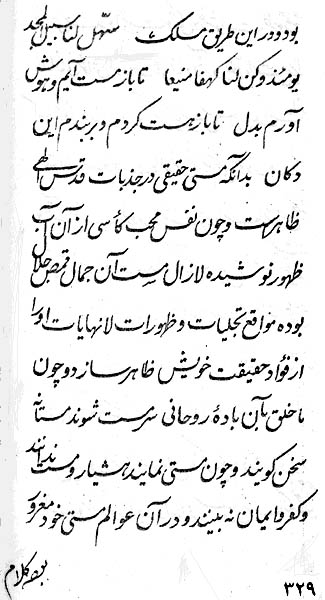 بود و در این طریق مسلک سهّل لنا سبیل المجد
یومئذ و کن لنا کهفاً منیعا تا باز مست آیم و بیهوش
آورم بدل تا باز هست کردم و بر بندم این
دکان بدانکه مستی حقیقی در جذبات قدس الهی
ظاهر است و چون نفس محب کأسی از آن آب
ظهور نوشیده لازال مست آن جمال قمص جلال
بوده مواقع تجلیات و ظهورات لانهایات او را
از فؤاد حقیقت خویش ظاهر سازد و چون
ما خلق بآن بادهٔ روحانی سرمست شوند مستانه
سخن گویند و چون مستی نمایند هشیار و مست ندانند
و کفر و ایمان نه بینند و در آن عوالم مستی خود مغرور
۳۲۹